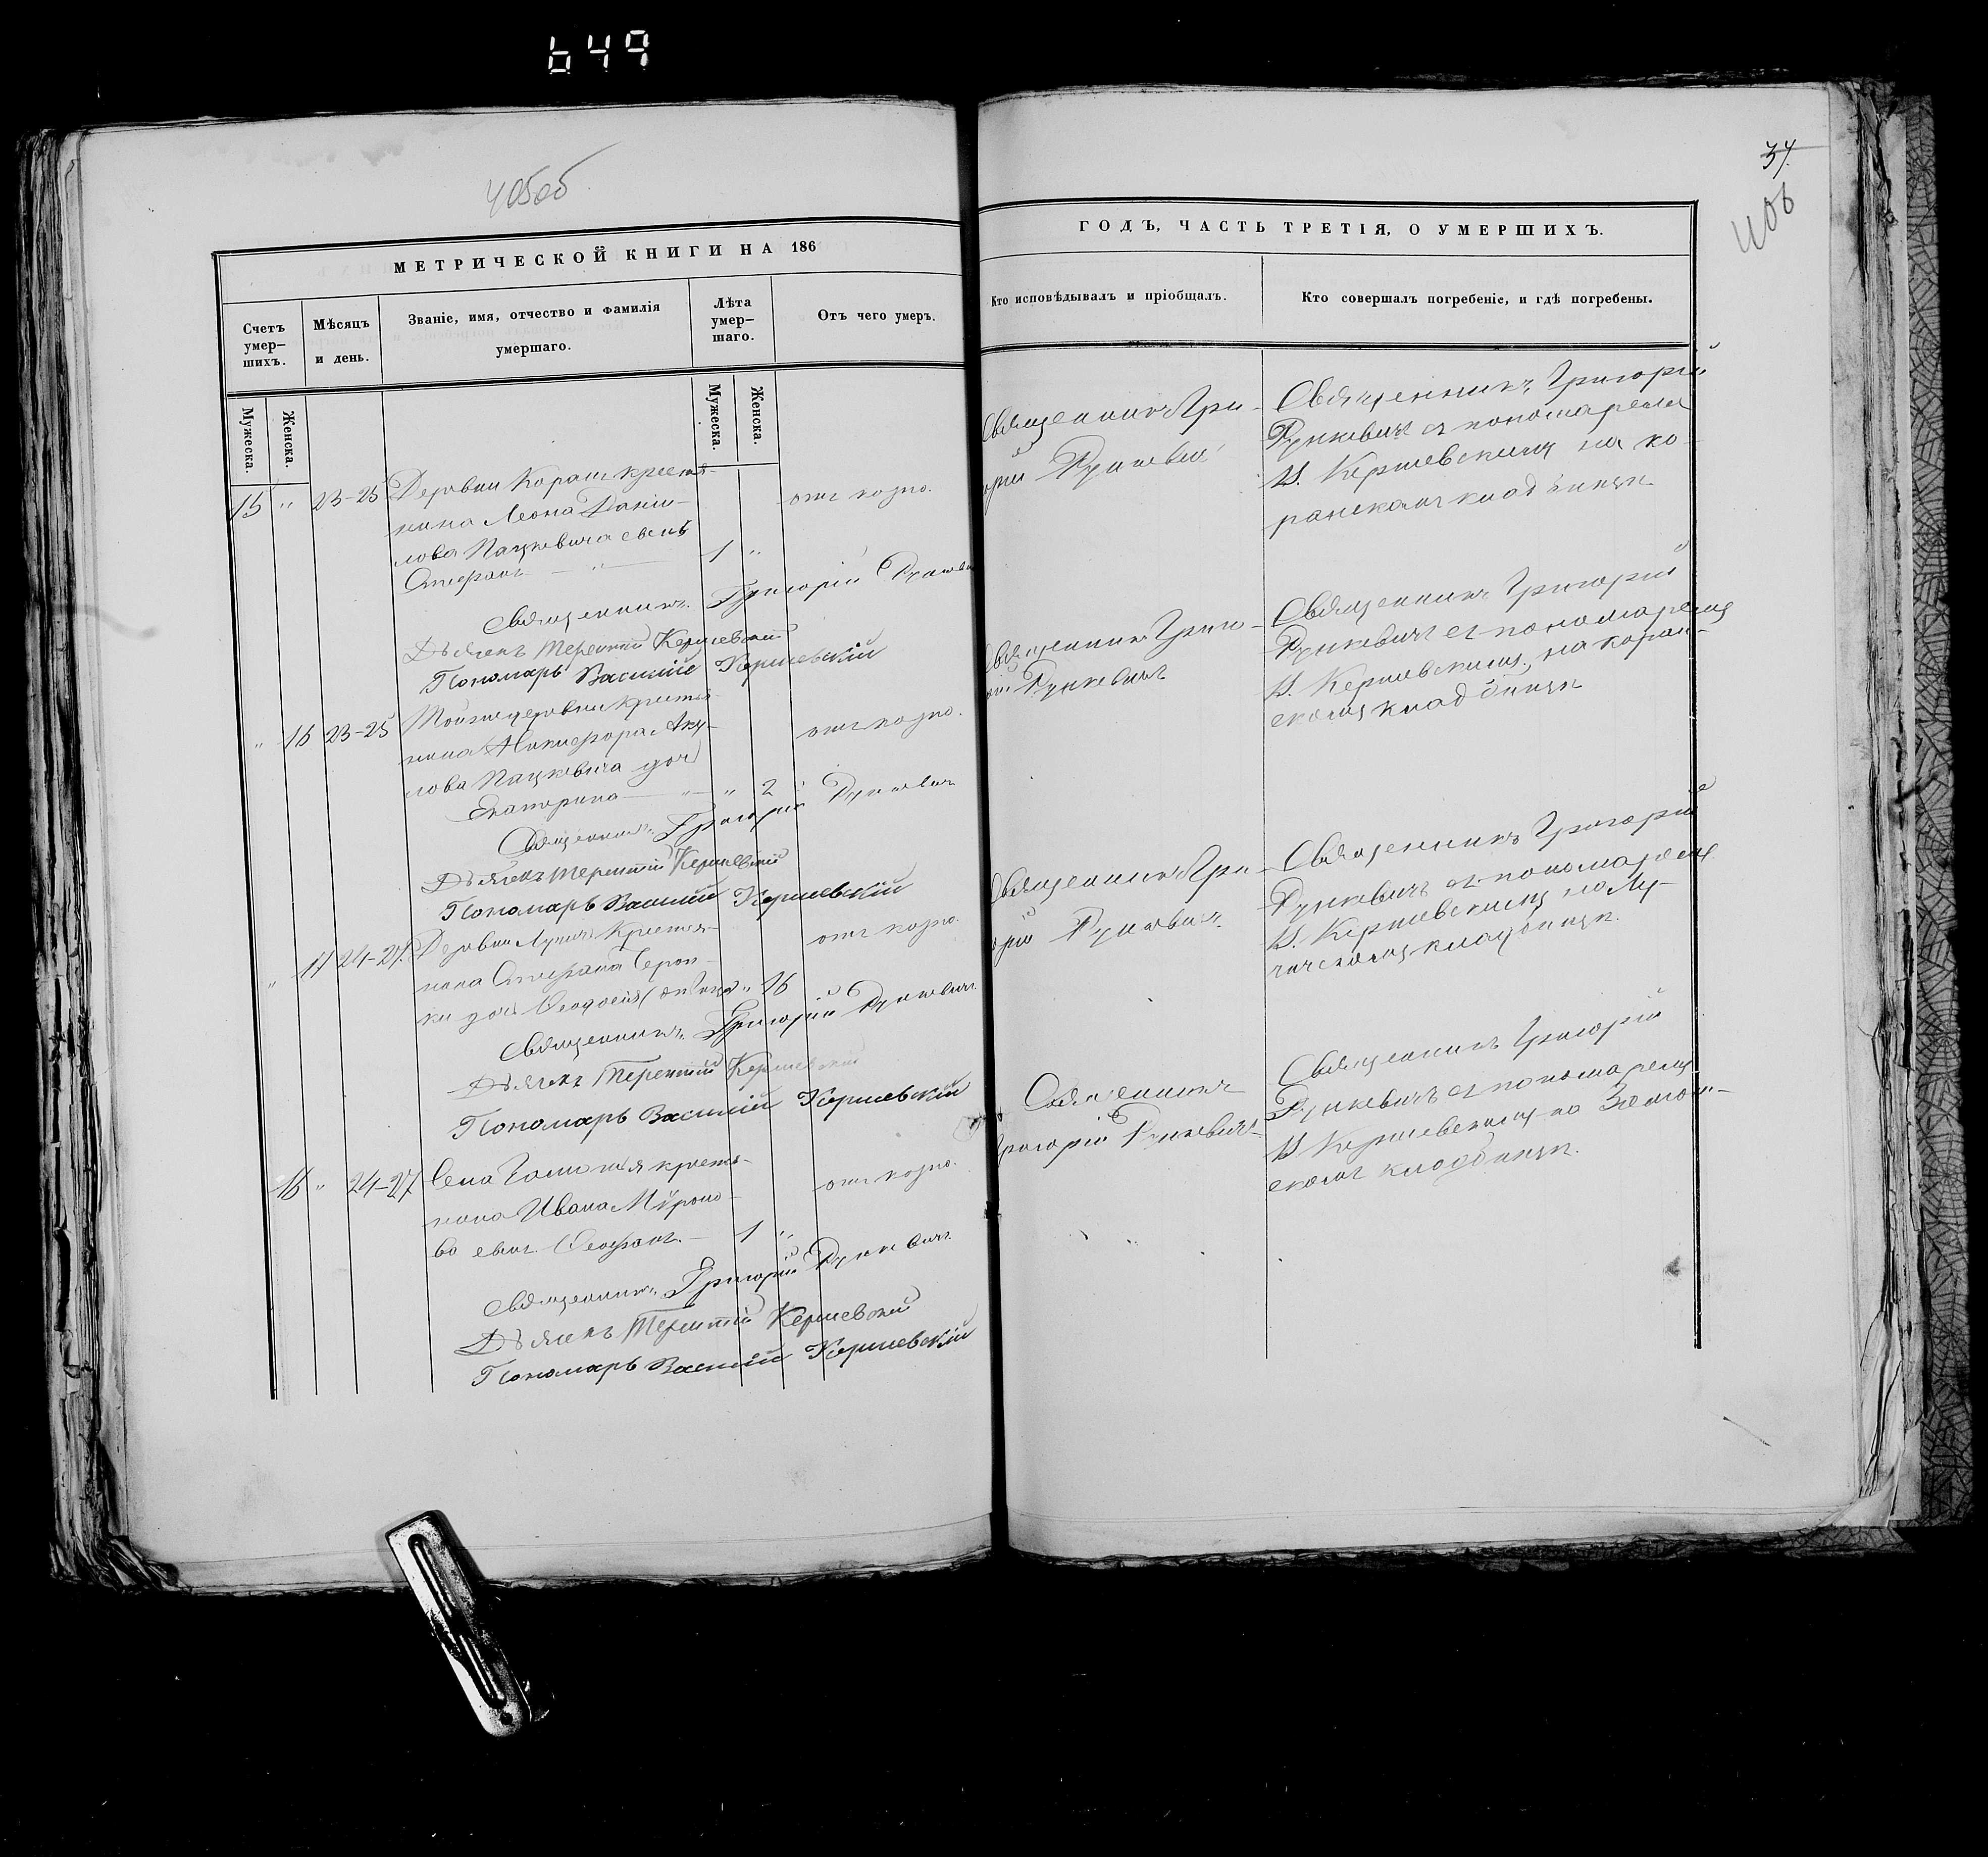 649
405об
МЕТРИЧЕСКОЙ КНИГИ НА 186
Счетъ умер-шихъ.
Мѣсяцъ и день.
Званіе, имя, отчество и фамилія умершаго.
Лѣта умер-шаго.
Отъ чего умеръ.
Мужеска.
Женска.
Мужеска.
Женска.
15 " 23-25 Деревни Корань крестья-
нина Леона Данiи-
лова Пацкевича сынъ
Стефанъ — " — 1 "
отъ коро.
Священникъ Григорій Рункевичъ
Дьячекъ Терентій Кершевскій
Пономарь Василій Кершевскій
" 16 23-25 Тойже деревни крестья-
нина Никифора Аку-
лова Пацкевича дочь
Екатерина — " — " 2
отъ коро.
Священникъ Григорій Рункевичъ
Дьячекъ Терентій Кершевскій
Пономарь Василій Кершевскій
" 17 24-27 Деревни Лучичъ Крестья-
нина Стефана
дочь Феодосія " 16
отъ коро.
Священникъ Григорій Рункевичъ
Дьячекъ Терентій Кершевскій
Пономарь Василій Кершевскій
16 " 24-27 Села крестья-
нина Ивана Мѵроно-
ва сынъ Феофанъ — 1 "
отъ коро.
Священникъ Григорій Рункевичъ
Дьячекъ Терентій Кершевскій
Пономарь Василій Кершевскій
37.
406
ГОДЪ, ЧАСТЬ ТРЕТІЯ, О УМЕРШИХЪ.
Кто исповѣдывалъ и пріобщалъ.
Кто совершалъ погребеніе, и гдѣ погребены.
Священникъ Гри-
орій Рункевичъ
Священникъ Григорій
Рункевичъ съ пономаремъ
В. Кершевскимъ на Ко-
ранскомъ кладбищѣ
Священникъ Григо-
рій Рункевичъ
Священникъ Григорій
Рункевичъ съ пономаремъ
В. Кершевскимъ, на Коран-
скомъ кладбищѣ
Священникъ Гри-
орій Рункевичъ
Священникъ Григорій
Рункевичъ съ пономаремъ
В. Кершевскимъ на Лу-
чичскомъ кладбищѣ.
Священникъ
Григорій Рункевичъ
Священникъ Григорій
Рункевичъ съ пономаремъ
В. Кершевскимъ на
скомъ кладбищѣ.